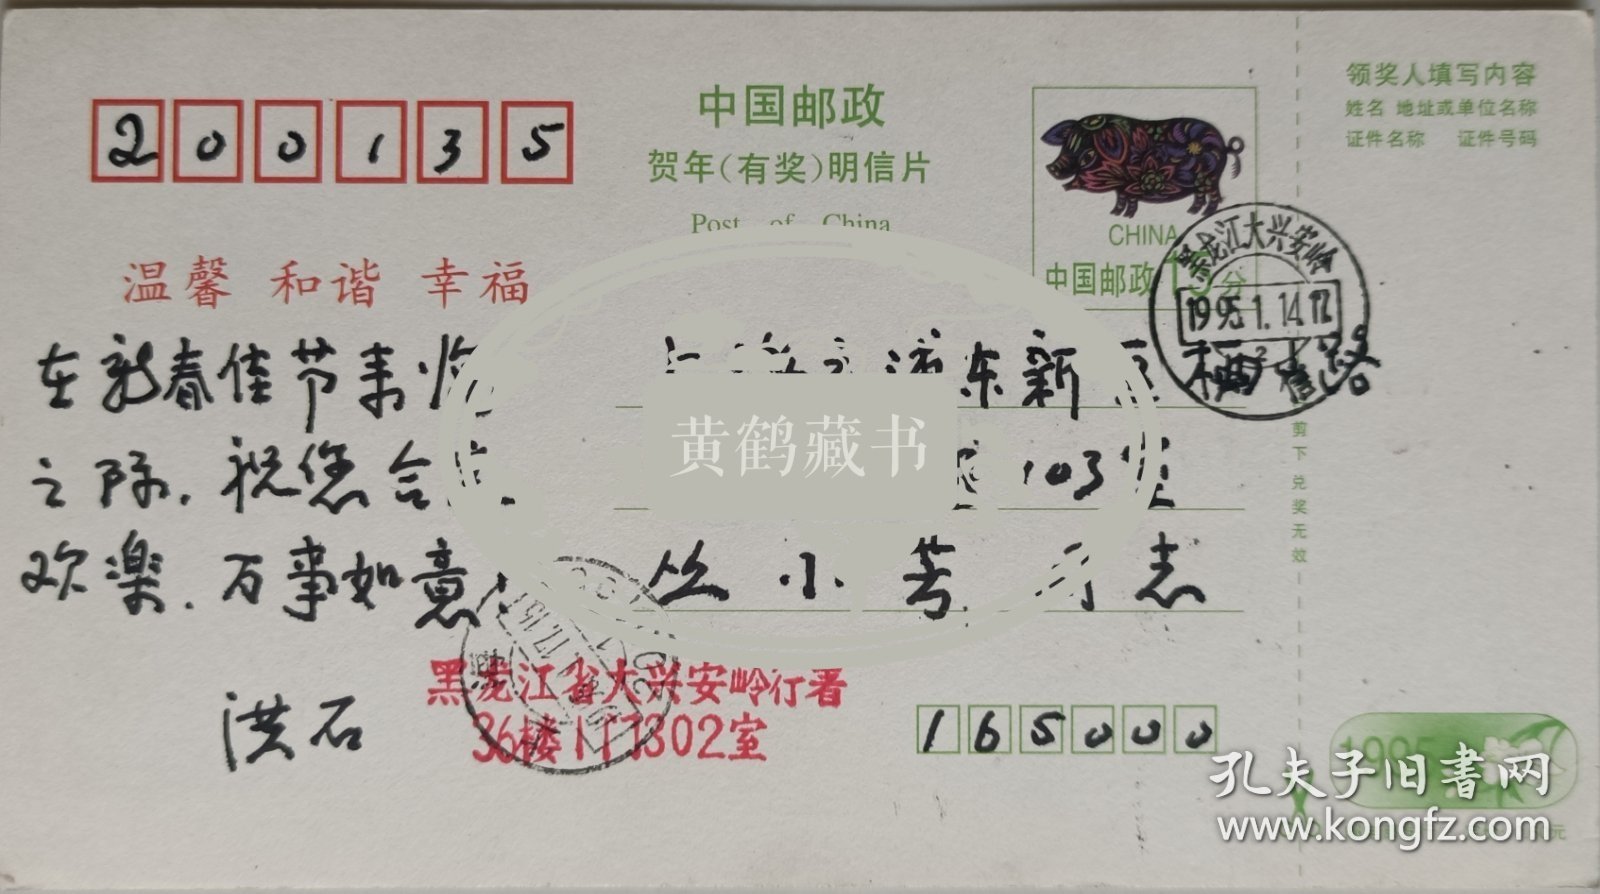 200135
中国邮政
贺年(有奖)明信片
Post of China
CHINA
中国邮政 15分
黑龙江大兴安岭
1995.1.14.17
领奖人填写内容
姓名 地址或单位名称
证件名称 证件号码
温馨 和谐 幸福
在新春佳节来临
之际.祝您合
欢乐.万事如意
洪石
浦东新区梅 路
103室
丛小 同志
黑龙江省大兴安岭行署
36楼1门302室
165000
剪下兑奖无效
1995
黄鹤藏书
孔夫子旧书网
www.kongfz.com
元